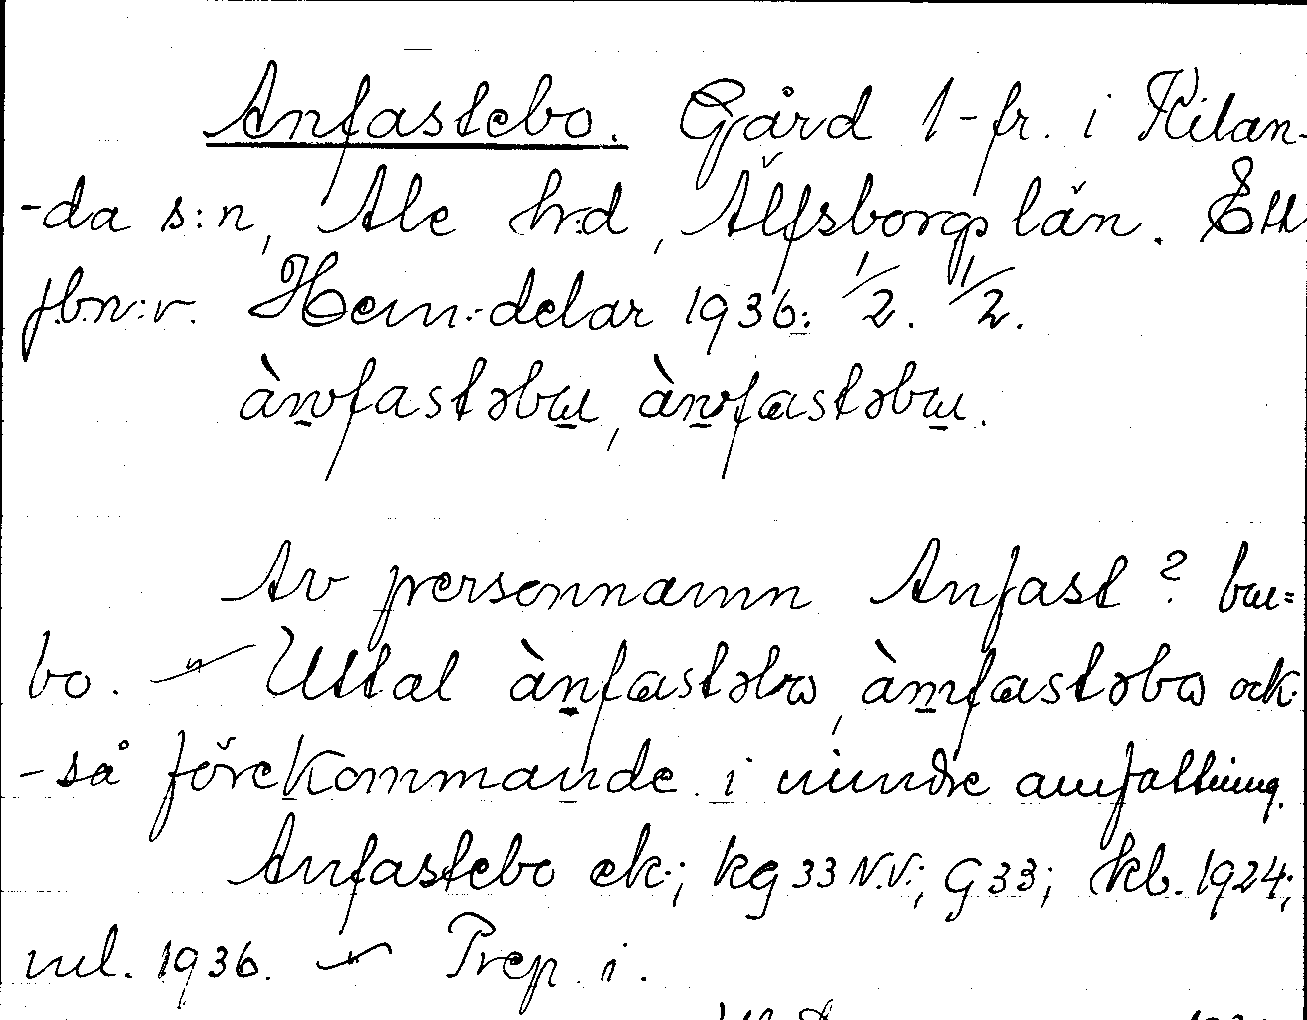 Anfastebo. Gård 1-fr. i Kilan-
-da s:n, Ale h:d, Älfsborgs län. Ett
jbn:r. Hem:delar 1936: 1/2. 1/2.
ànfastəbɯ, ànfastəbɯ.
Av personnamn Anfast? bɯ=
bo. — Uttal ànfastəbɷ, àmfastəbɷ ock-
-så förekommande i mindre omfattning.
Anfastebo ek; kg 33 N.V.; G 33; kb. 1924;
ml. 1936. — Prep. i.